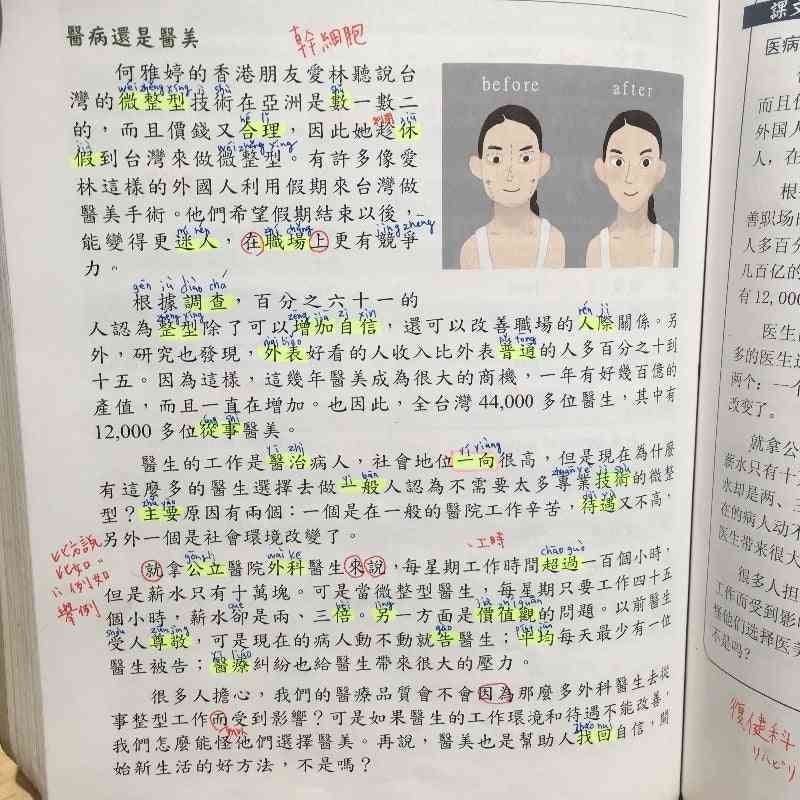 醫病還是醫美
幹細胞
before
after
何雅婷的香港朋友愛林聽說台
wéi zhěng xíng jì shù
灣的微整型技術在亞洲是數一數二
hé lǐ
的，而且價錢又合理，因此她趁休
wéi zhěng xíng
假到台灣來做微整型。有許多像愛
林這樣的外國人利用假期來台灣做
醫美手術。他們希望假期結束以後，
mí rén zhí chǎng jìng zhēng
能變得更迷人，在職場上更有競爭
力。
gēn jù diào chá
根據調查，百分之六十一的
zhěng xíng zēng jiā zì xìn rén jì
人認為整型除了可以增加自信，還可以改善職場的人際關係。另
wài biǎo pǔ tōng
外，研究也發現，外表好看的人收入比外表普通的人多百分之十到
十五。因為這樣，這幾年醫美成為很大的商機，一年有好幾百億的
產值，而且一直在增加。也因此，全台灣44,000多位醫生，其中有
cóng shì
12,000多位從事醫美。
yī zhì yí xiàng
醫生的工作是醫治病人，社會地位一向很高，但是現在為什麼
yì bān zhuān yè jì shù
有這麼多的醫生選擇去做一般人認為不需要太多專業技術的微整
zhǔ yào dài yù
型？主要原因有兩個：一個是在一般的醫院工作辛苦，待遇又不高，
另外一個是社會環境改變了。
比方說
比如
例如
舉例
工時
gōng lì wài kē chāo guò
就拿公立醫院外科醫生來說，每星期工作時間超過一百個小時，
但是薪水只有十萬塊。可是當微整型醫生，每星期只要工作四十五
què bèi lìng jià zhí guān
個小時，薪水卻是兩、三倍。另一方面是價值觀的問題。以前醫生
shòu zūn jìng gào píng jūn
受人尊敬，可是現在的病人動不動就告醫生；平均每天最少有一位
yī liáo
醫生被告；醫療糾紛也給醫生帶來很大的壓力。
很多人擔心，我們的醫療品質會不會因為那麼多外科醫生去從
事整型工作而受到影響？可是如果醫生的工作環境和待遇不能改善，
zhǎo huí
我們怎麼能怪他們選擇醫美。再說，醫美也是幫助人找回自信，開
始新生活的好方法，不是嗎？
課文
医病
而且
外国人
人，在
根
善职场的
人多百分
几百亿的
有12,000
医生
多的医生
两个：一个
改变了。
就拿公
薪水只有十
水却是两、三
在的病人动不
医生带来很大
很多人担
工作而受到影
择他们选择医美
不是吗？
復健科
リハビリ